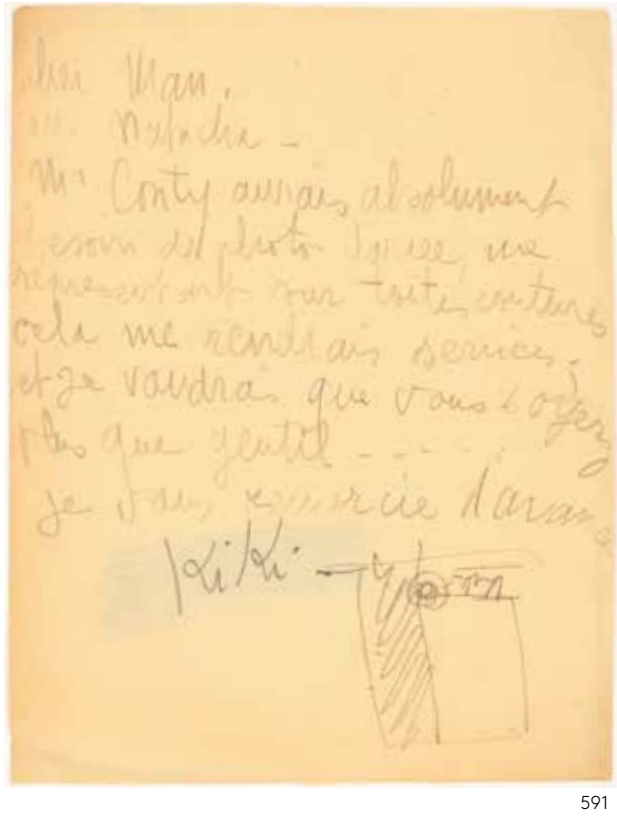 Man.
Natacha -
Mr Conty aurais absolument
besoin de photos me
representant sur toutes coutures
cela me rendrais services.
et je voudrais que vous soyez
plus que gentil - - - -
je vous remercie d'avance
KiKi -
591